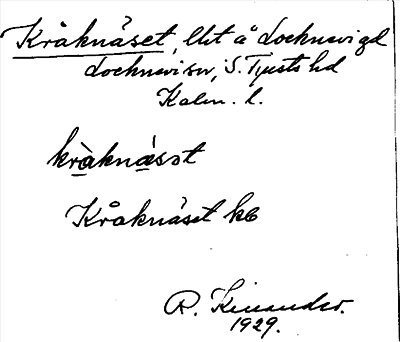 Kråknäset, lht å Locknevi gd
Locknevi sn, S. Tjusts hd
Kalm. l.
kràknä́sət
Kråknäset kb
R. Kinander.
1929.